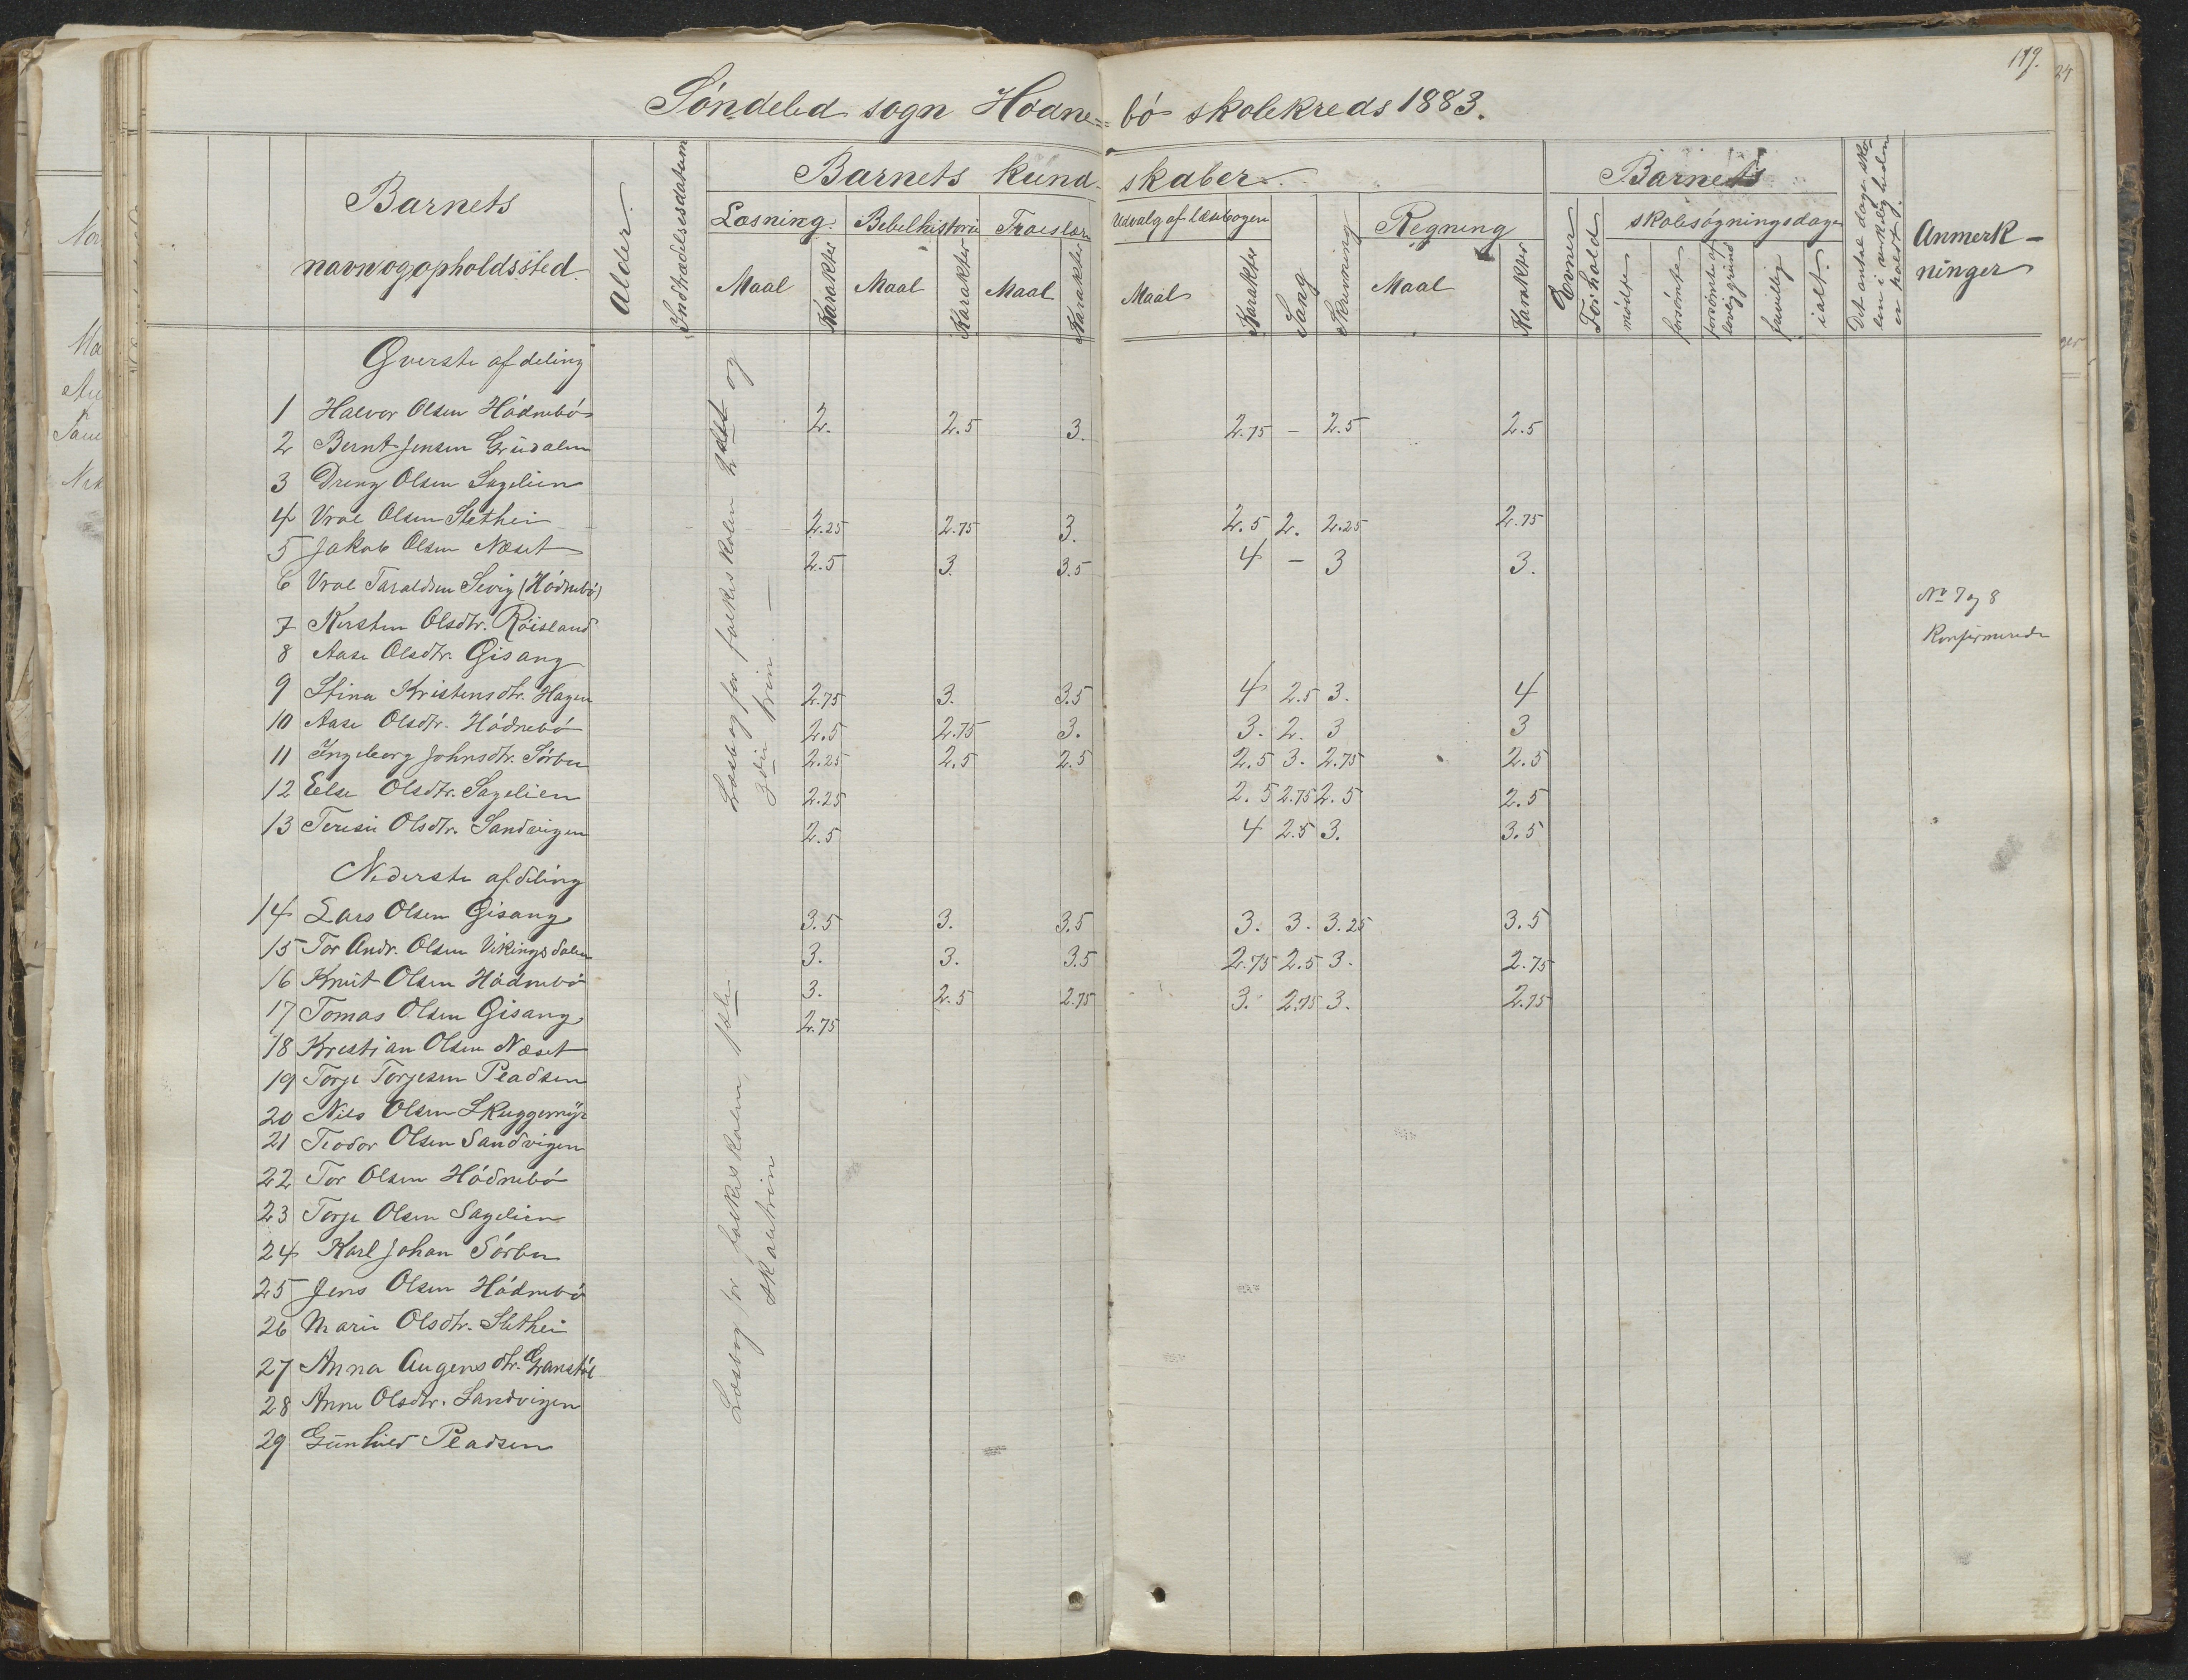 179.
Söndeled sogn Hödne= bö skolekreds 1883.
Barnets navn og opholdssted.
Alder.
Indtrædelsesdatum
Barnets kund- skaber.
Læsning. Maal Karakter
Bibelhistorie Maal Karakter
Troeslære Maal Karakter
Udvalg af læsebogen Maal Karakter
Sang
Skrivning
Regning Maal Karakter
Evner
Forhold
Barnets skolesögningsdage
mödte
forsömte
forsömte af lovlig grund
frivillig
ialt.
Det antal dage skolen i virkeligheden er holdt.
Anmerk- ninger
Överste afdeling
1 Halvor Olsen Hödnebö 2. 2.5 3. 2.75 – 2.5 2.5
2 Bernt Jensen
3 Dreng Olsen Sagelien
4 Vrol Olsen Slethei 2.25 2.75 3. 2.5 2. 2.25 2.75
5 Jakob Olsen Næset 2.5 3. 3.5 4 – 3 3.
6 Vrol Taraldsen Sevig (Hödnebö)
7 Kirsten Olsdtr. Röisland
8 Aase Olsdtr. Gisang
No 7 og 8
Konfirmerede
9 Stina Kristensdtr. Hagen 2.75 3. 3.5 4 2.5 3. 4
10 Aase Olsdtr. Hödnebö 2.5 2.75 3. 3. 2. 3 3
11 Ingeborg Johnsdtr. Sörbu 2.25 2.5 2.5 2.5 3. 2.75 2.5
12 Else Olsdtr. Sagelien 2.25 2.5 2.75 2.5 2.5
13 Teresie Olsdtr. Sandvigen 2.5 4 2.5 3. 3.5
Læsebog for folkeskolen 2det og
3die trin. —
Nederste afdeling
14 Lars Olsen Gisang 3.5 3. 3.5 3. 3. 3.25 3.5
15 Tor Andr. Olsen Vikingsdalen 3. 3. 3.5 2.75 2.5 3. 2.75
16 Knut Olsen Hödnebö 3. 2.5 2.75 3. 2.75 3. 2.75
17 Tomas Olsen Gisang 2.75
18 Kristian Olsen Næset
19 Torje Torjesen Pladsen
20 Nils Olsen Skuggemyr
21 Teodor Olsen Sandvigen
22 Tor Olsen Hödnebö
23 Torje Olsen Sagelien
24 Karl Johan Sörbu
25 Jens Olsen Hödnebö
26 Marie Olsdtr. Slethei
27 Anna Augensdtr. Granstöl
28 Anne Olsdtr. Sandvigen
29 Gunhild Pladsen
Læsebog for folkeskolen, 1ste
skoletrin